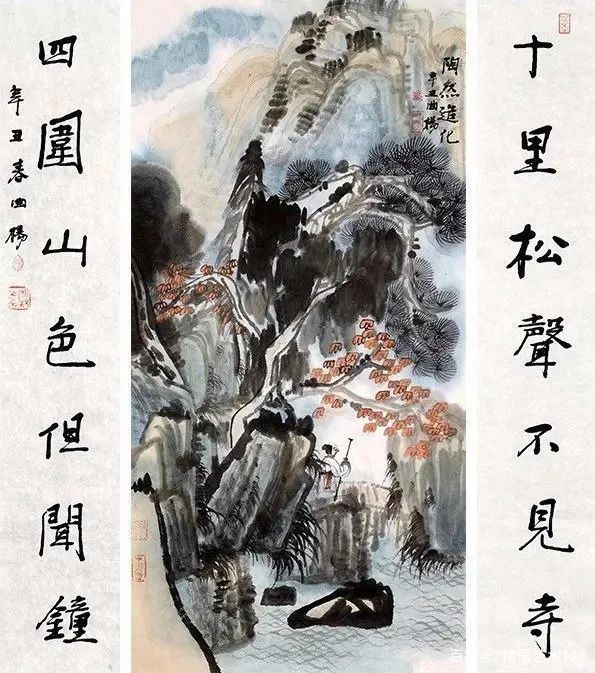 十里松聲不見寺
陶然造化
辛丑曲楊
四圍山色但聞鐘
辛丑春曲楊